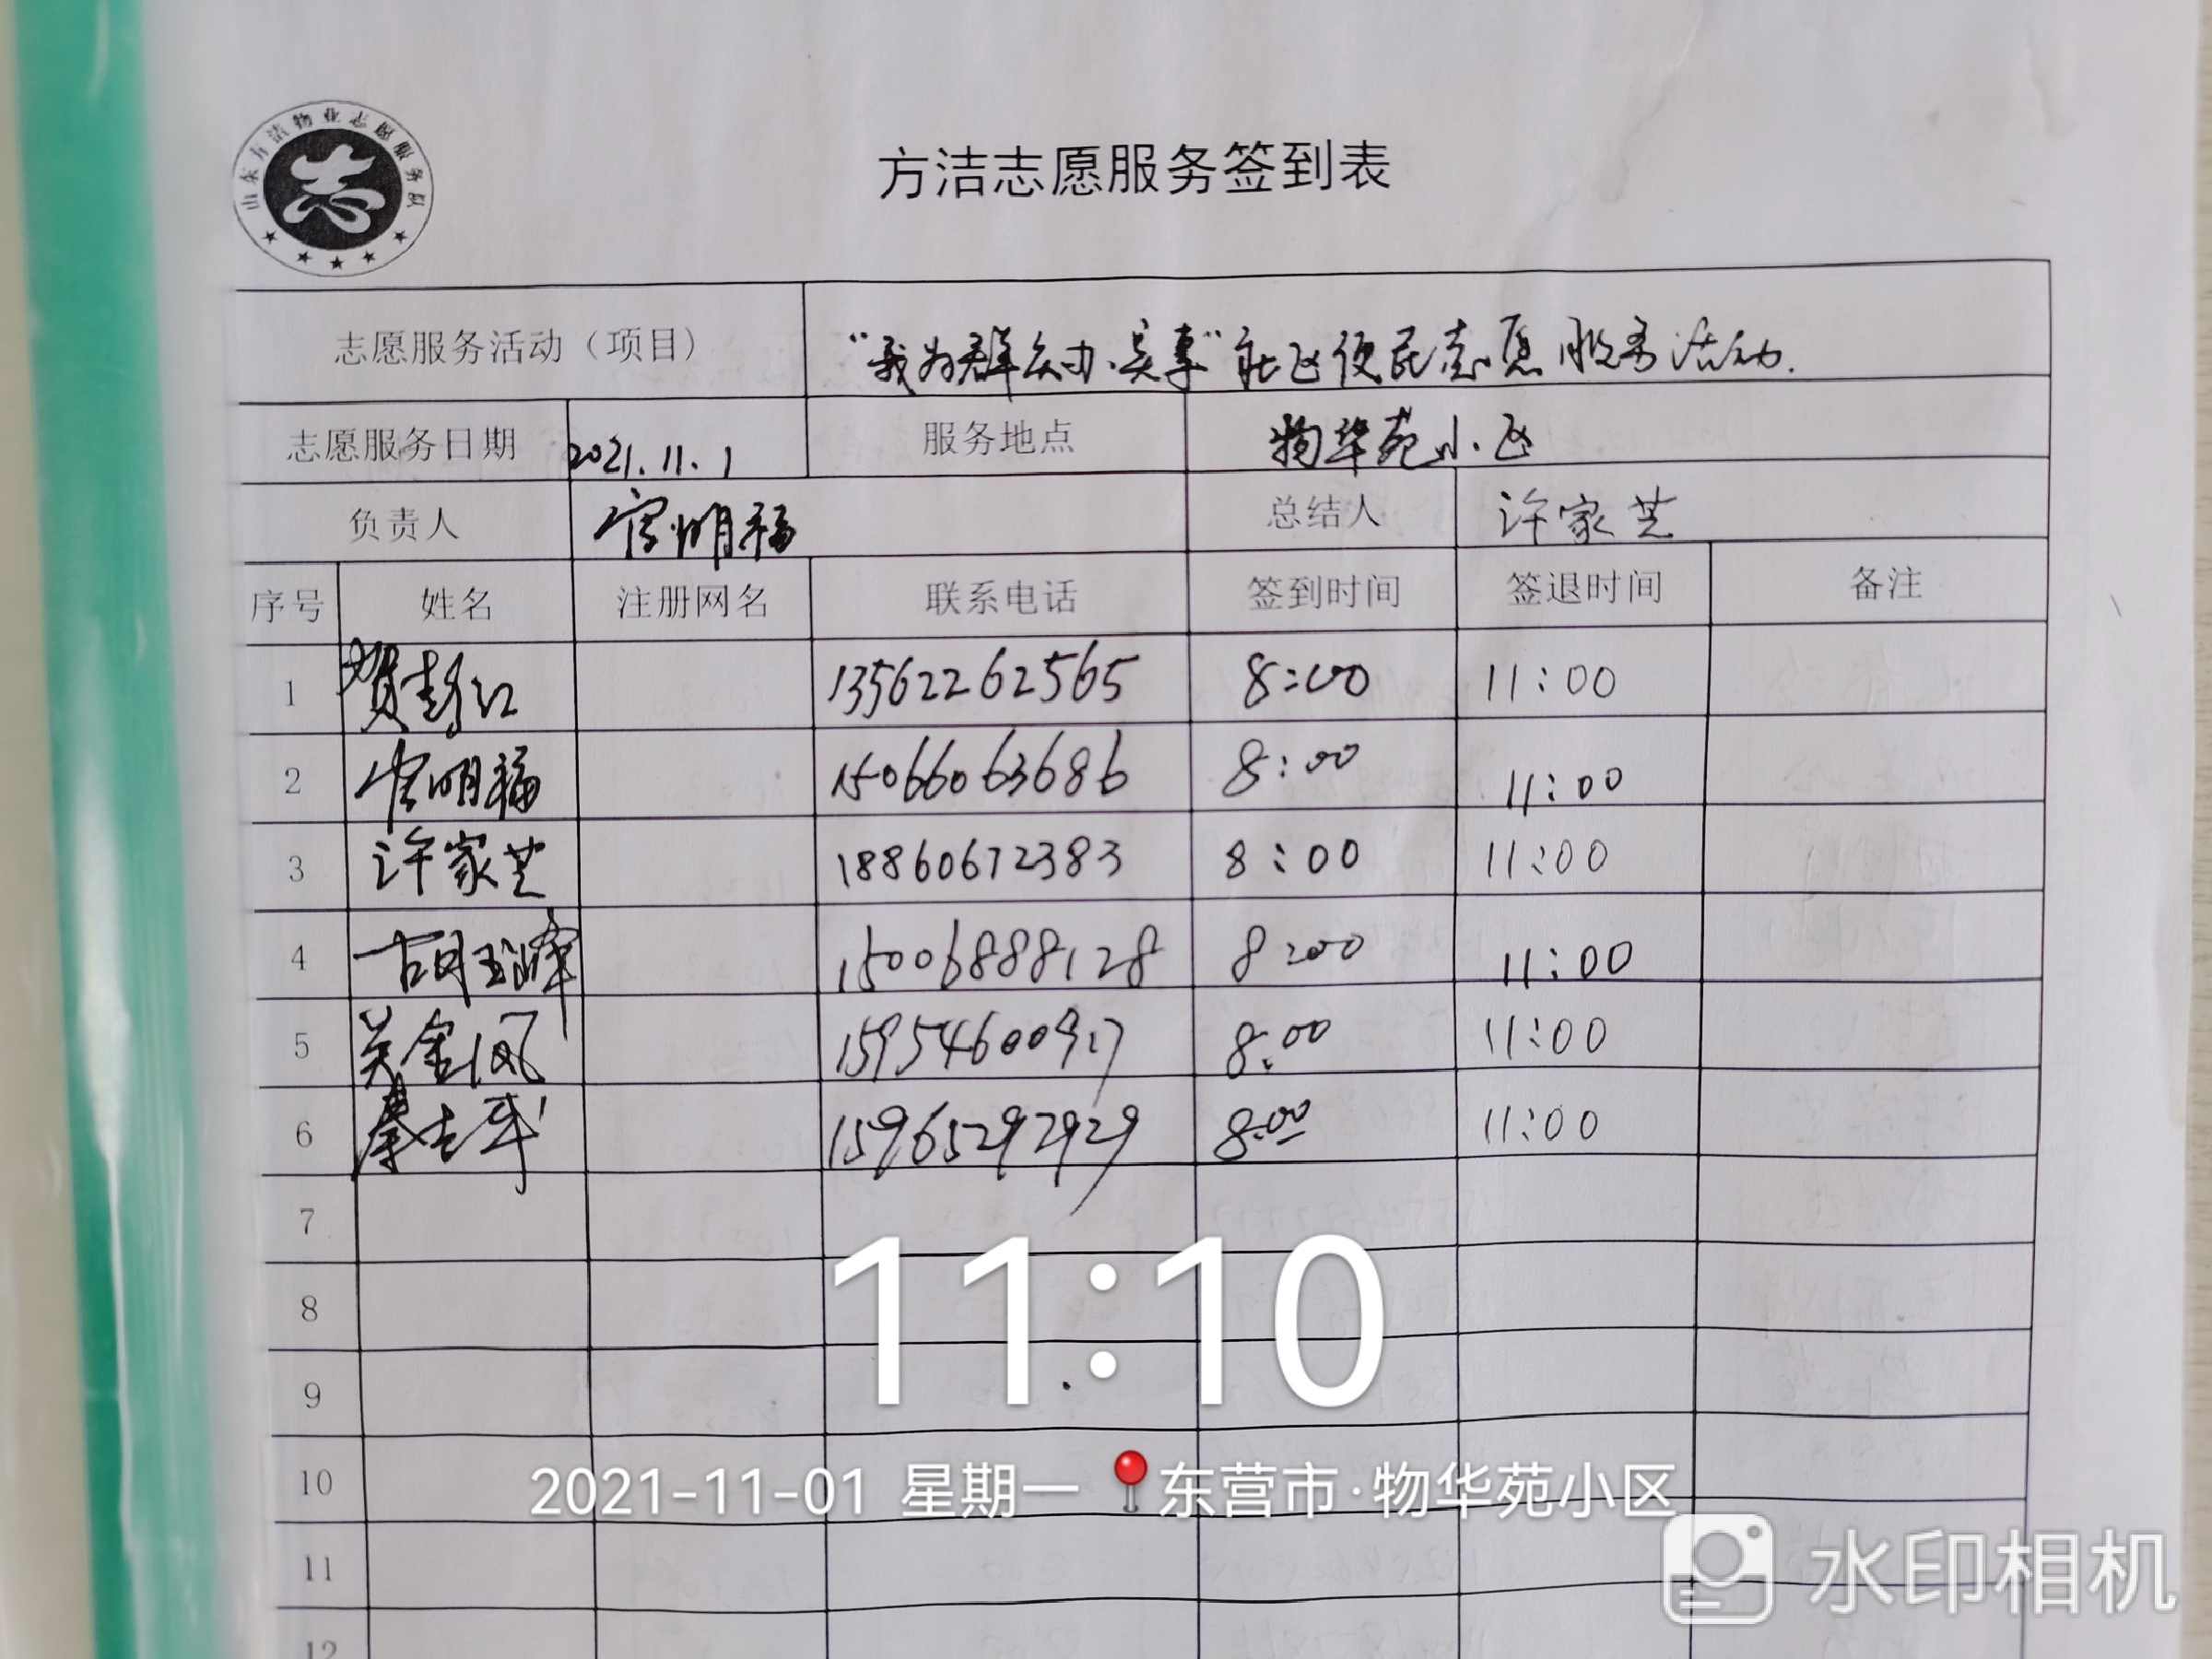 山东方洁物业志愿服务队
志
方洁志愿服务签到表
志愿服务活动（项目） “我为群众办实事”社区便民志愿服务活动.
志愿服务日期 2021.11.1 服务地点 物华苑小区
负责人 明福 总结人 许家芝
序号 姓名 注册网名 联系电话 签到时间 签退时间 备注
1 贺彭江 13562262565 8:00 11:00
2 明福 15066063686 8:00 11:00
3 许家芝 18860672383 8:00 11:00
4 胡玉峰 15006888128 8:00 11:00
5 关金凤 15954600917 8:00 11:00
6 秦志军 15965292929 8:00 11:00
7
8
9
10
11
12
11:10
2021-11-01 星期一 东营市·物华苑小区
水印相机